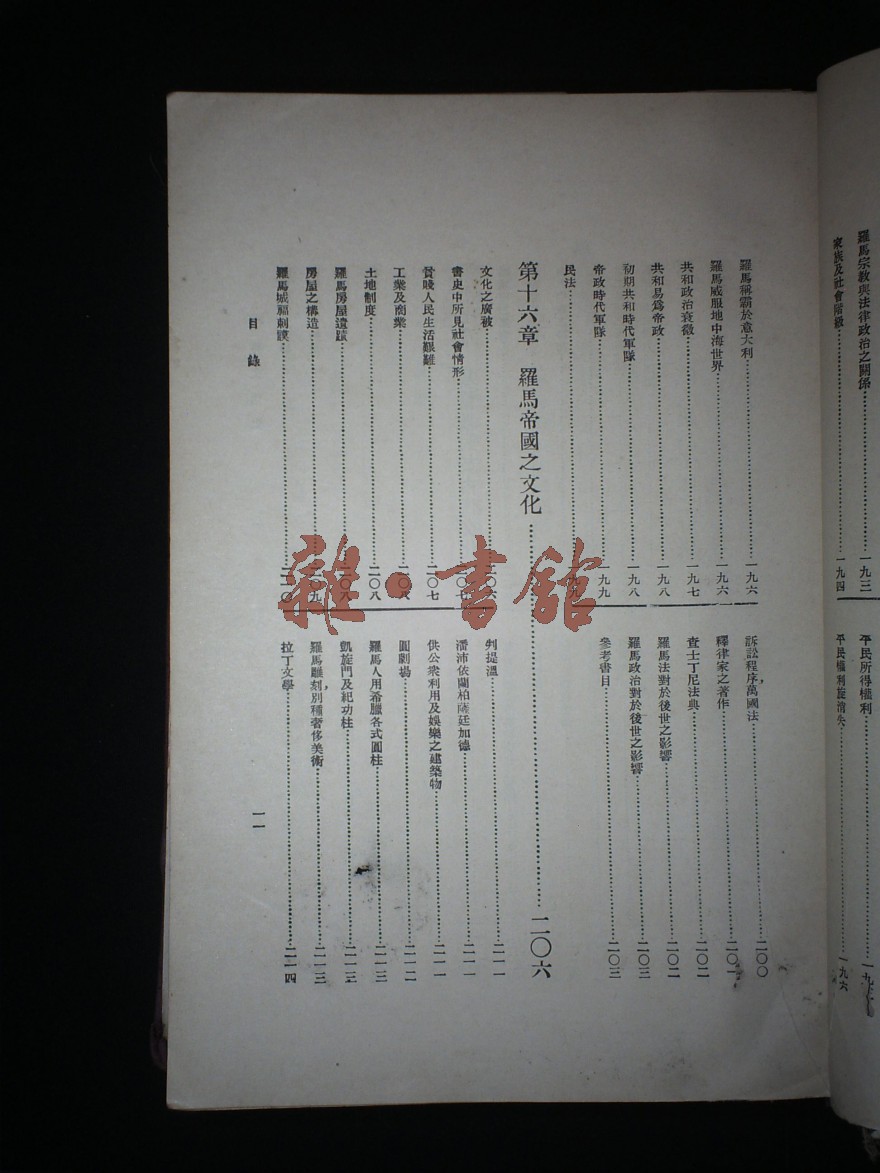 羅馬宗教與法律政治之關係……一九三
家族及社會階級……一九四
平民所得權利……一九
平民權利旋消失……一九六
羅馬稱霸於意大利……一九六
羅馬威服地中海世界……一九六
共和政治衰微……一九七
共和易爲帝政……一九八
初期共和時代軍隊……一九八
帝政時代軍隊……一九九
民法……一九九
訴訟程序，萬國法……二〇〇
釋律家之著作……二〇一
查士丁尼法典……二〇二
羅馬法對於後世之影響……二〇二
羅馬政治對於後世之影響……二〇三
參考書目……二〇三
第十六章　羅馬帝國之文化……二〇六
文化之廣被……二〇六
書史中所見社會情形……二〇七
貧賤人民生活艱難……二〇七
工業及商業……二〇八
土地制度……二〇八
羅馬房屋遺蹟……二〇八
房屋之構造……二〇九
羅馬城福剌謨……二一〇
判提溫……二一一
潘沛依蘭柏薩廷加德……二一一
供公衆利用及娛樂之建築物……二一一
圓劇場……二一二
羅馬人用希臘各式圓柱……二一三
凱旋門及紀功柱……二一三
羅馬雕刻，別種奢侈美術……二一三
拉丁文學……二一四
目錄
一一
雜·書館